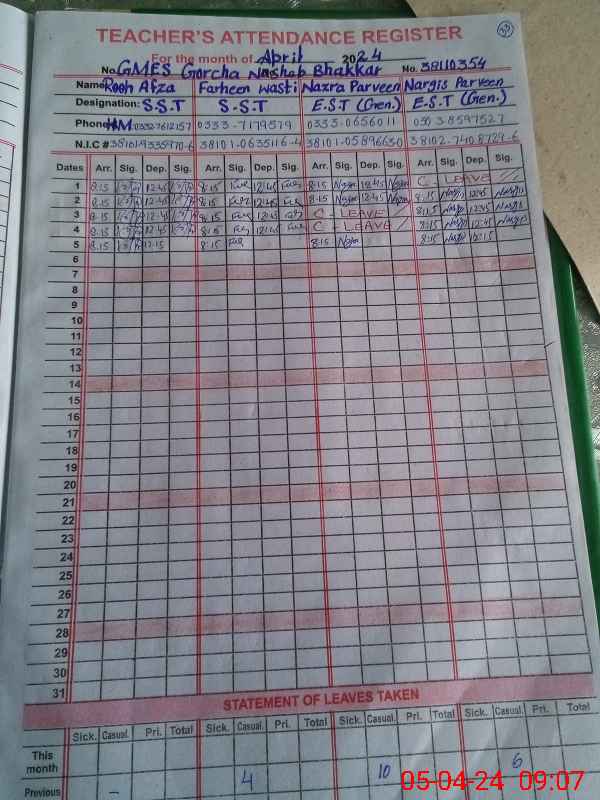 TEACHER'S ATTENDANCE REGISTER
For the month of April 2024
No. GMES Gorcha Nashab Bhakkar No. 38110354
Name Rooh Afza Farheen Wasti Nazra Parveen Nargis Parveen
Designation: S.S.T S.S.T E.S.T (Gen.) E.S.T (Gen.)
Phone HM: 0332-7612157 0333-7179579 0333-0656011 0303-8597527
N.I.C # 38101-0635116-4
Dates Arr. Sig. Dep. Sig. Arr. Sig. Dep. Sig. Arr. Sig. Dep. Sig. Arr. Sig. Dep. Sig.
1 8:15 12:45 8:15 12:45 8:15 12:45 C - LEAVE
2 8:15 12:45 8:15 12:45 8:15 12:45 8:15 12:45
3 8:15 12:45 8:15 12:45 C - LEAVE 8:15 12:45
4 8:15 12:45 8:15 12:45 C - LEAVE 8:15 12:45
5 8:15 12:15 8:15 8:15 8:15 12:15
6
7
8
9
10
11
12
13
14
15
16
17
18
19
20
21
22
23
24
25
26
27
28
29
30
31
STATEMENT OF LEAVES TAKEN
Sick. Casual. Pri. Total Sick. Casual. Pri. Total Sick. Casual. Pri. Total Sick. Casual. Pri. Total
This month
Previous - 4 10 6
05-04-24 09:07